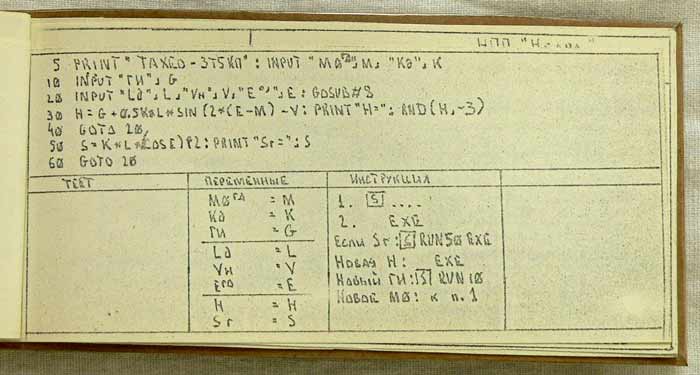 НПП "Недра"
5 PRINT" TAXEO-3T5KП": INPUT "MØГД", M, "Кд", K
10 INPUT "ГИ", G
20 INPUT "Lд", L, "Vн", V, "E", E : GOSUB#8
30 H=G+0.5K*L*SIN (2*(E-M) -V: PRINT"H="; RND(H,-3)
40 GOTO 20
50 S=K*L*(COSE)↑2: PRINT"Sг="; S
60 GOTO 20
TEST ПЕРЕМЕННЫЕ ИНСТРУКЦИЯ
MØГД = M
Кд = K
ГИ = G
Lд = L
Vн = V
EГД = E
H = H
Sг = S
1. S ....
2. EXE
Если Sг: S RUN 5Ø EXE
Новая H: EXE
Новый ГИ: S RUN 10
Новое MØ: к п. 1